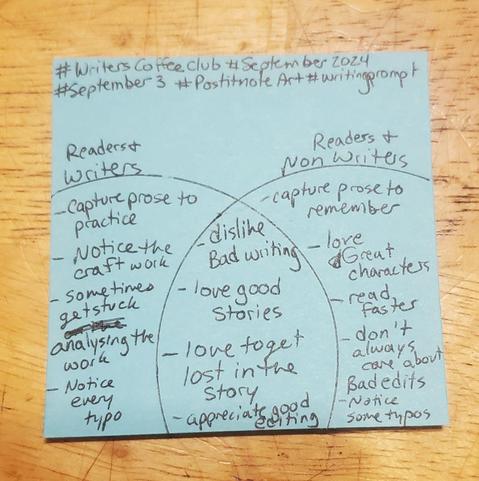 #Writers Coffee Club #September 2024
#September 3 #Postitnote Art #writingprompt
Readers &
Writers
- Capture prose to
practice
- Notice the
craft work
- sometimes
get stuck
analysing the
work
- Notice
every
typo
- dislike
Bad writing
- love good
Stories
- love to get
lost in the
Story
- appreciate good
editing
Readers &
Non Writers
- capture prose to
remember
- love
Great
characters
- read
faster
- don't
always
care about
Bad edits
- Notice
some typos